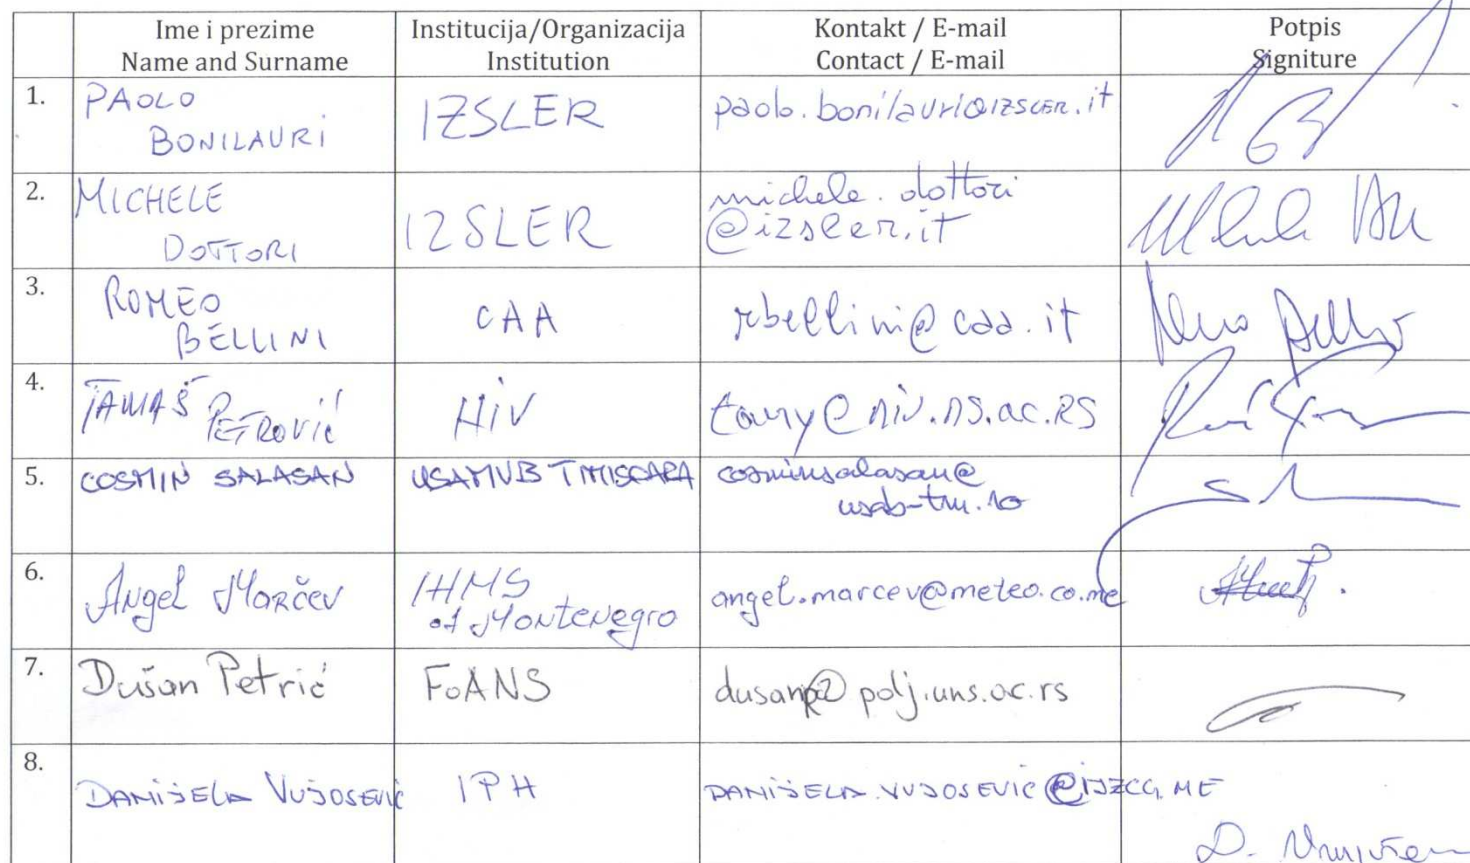 Ime i prezime
Name and Surname
Institucija/Organizacija
Institution
Kontakt / E-mail
Contact / E-mail
Potpis
Signiture
1.
PAOLO
BONILAURI
IZSLER
paolo.bonilauri@izsler.it
2.
MICHELE
DOTTORI
IZSLER
michele.dottori
@izsler.it
3.
ROMEO
BELLINI
CAA
rbellini@caa.it
4.
TAMAŠ PETROVIĆ
NiV
tamy@niv.ns.ac.RS
5.
COSMIN SALASAN
USAMVB TIMISOARA
cosminsalasan@
usab-tm.ro
6.
Angel Marčev
IHMS
of Montenegro
angel.marcev@meteo.co.me
7.
Dušan Petrić
FoANS
dusanp@polj.uns.ac.rs
8.
DANIJELA VUJOSEVIĆ
IPH
DANIJELA.VUJOSEVIC@IJZCG.ME